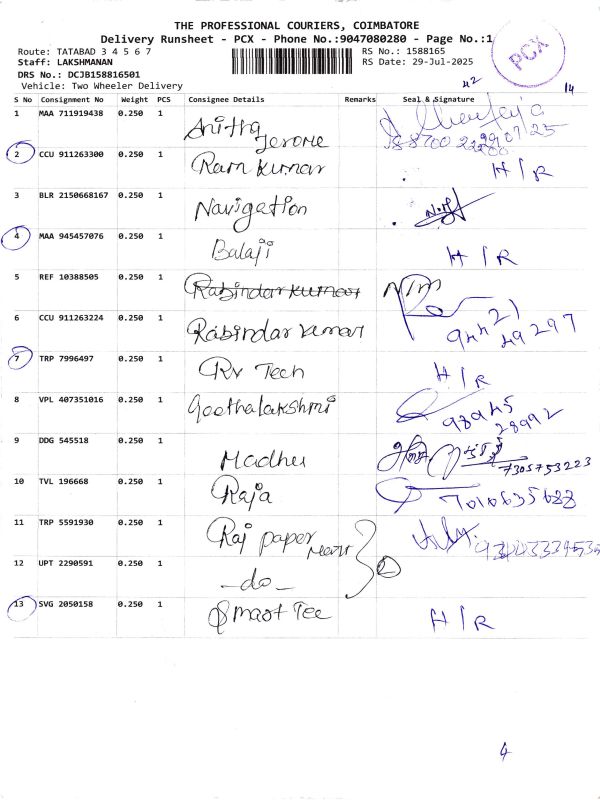 THE PROFESSIONAL COURIERS, COIMBATORE
Delivery Runsheet - PCX - Phone No.:9047080280 - Page No.:1
Route: TATABAD 3 4 5 6 7
RS No.: 1588165
Staff: LAKSHMANAN
RS Date: 29-Jul-2025
DRS No.: DCJB158816501
Vehicle: Two Wheeler Delivery
PCX
42
14
S No Consignment No Weight PCS Consignee Details Remarks Seal & Signature
1 MAA 711919438 0.250 1 Anitha Jerome
2 CCU 911263300 0.250 1 Ram Kumar H/R
3 BLR 2150668167 0.250 1 Navigation
4 MAA 945457076 0.250 1 Balaji H/R
5 REF 10388505 0.250 1 Rabindar Kumar NIM
6 CCU 911263224 0.250 1 Rabindar Kumar 94421 49297
7 TRP 7996497 0.250 1 RV Tech H/R
8 VPL 407351016 0.250 1 Geethalakshmi 98945 28992
9 DDG 545518 0.250 1 Madhu 7305753223
10 TVL 196668 0.250 1 Raja 7010635688
11 TRP 5591930 0.250 1 Raj paper mart
12 UPT 2290591 0.250 1 -do- 2
13 SVG 2050158 0.250 1 Smart Tee H/R
4